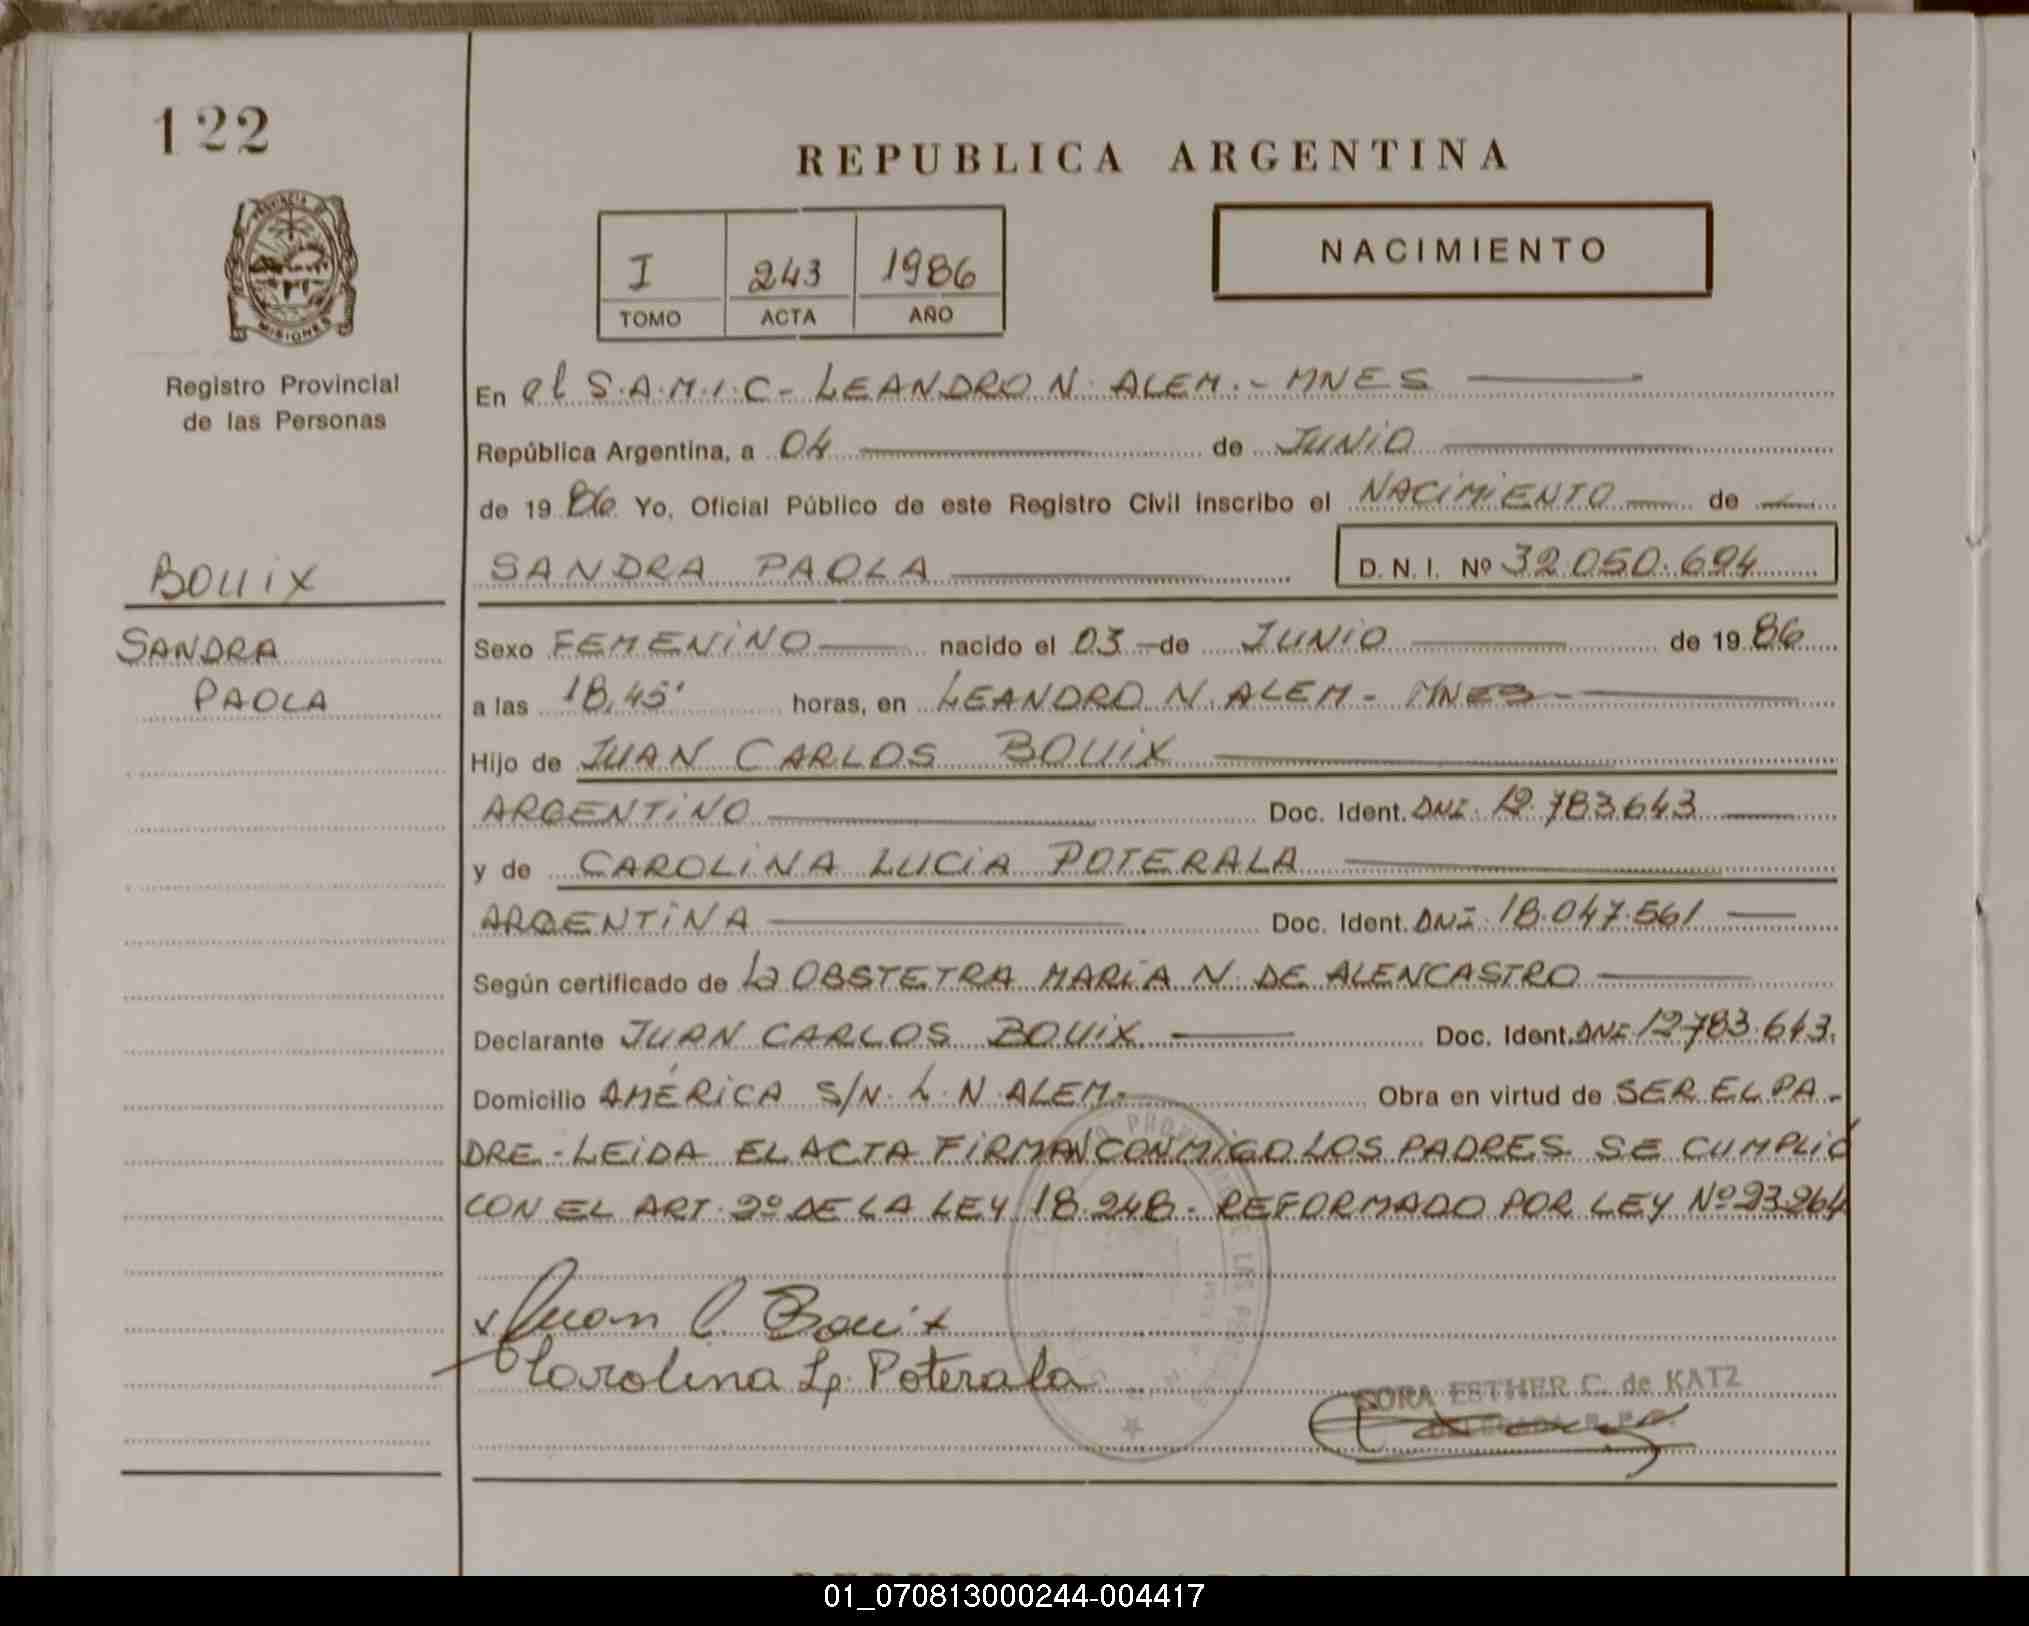 122
REPUBLICA ARGENTINA
PROVINCIA DE
MISIONES
Registro Provincial
de las Personas
I 243 1986
TOMO ACTA AÑO
NACIMIENTO
En el S.A.M.I.C - LEANDRO N. ALEM.- MNES
República Argentina, a 04 de JUNIO
de 19 86 Yo, Oficial Público de este Registro Civil inscribo el NACIMIENTO de
SANDRA PAOLA D. N. I. Nº 32.050.694
BOUIX
SANDRA
PAOLA
Sexo FEMENINO nacido el 03 de JUNIO de 19 86
a las 18,45' horas, en LEANDRO N. ALEM - MNES
Hijo de JUAN CARLOS BOUIX
ARGENTINO Doc. Ident. DNI. 12.783.643
y de CAROLINA LUCIA POTERALA
ARGENTINA Doc. Ident. DNI. 18.047.561
Según certificado de La OBSTETRA MARIA N. DE ALENCASTRO
Declarante JUAN CARLOS BOUIX Doc. Ident. DNI 12783.643.
Domicilio AMÉRICA S/N. L. N ALEM.- Obra en virtud de SER EL PA-
DRE.-LEIDA EL ACTA FIRMAN CONMIGO LOS PADRES SE CUMPLIÓ
CON EL ART. 2º DE LA LEY 18.248 - REFORMADO POR LEY Nº 23.264
Juan C. Bouix
Carolina L. Poterala
ESTHER C. de KATZ
01_070813000244-004417